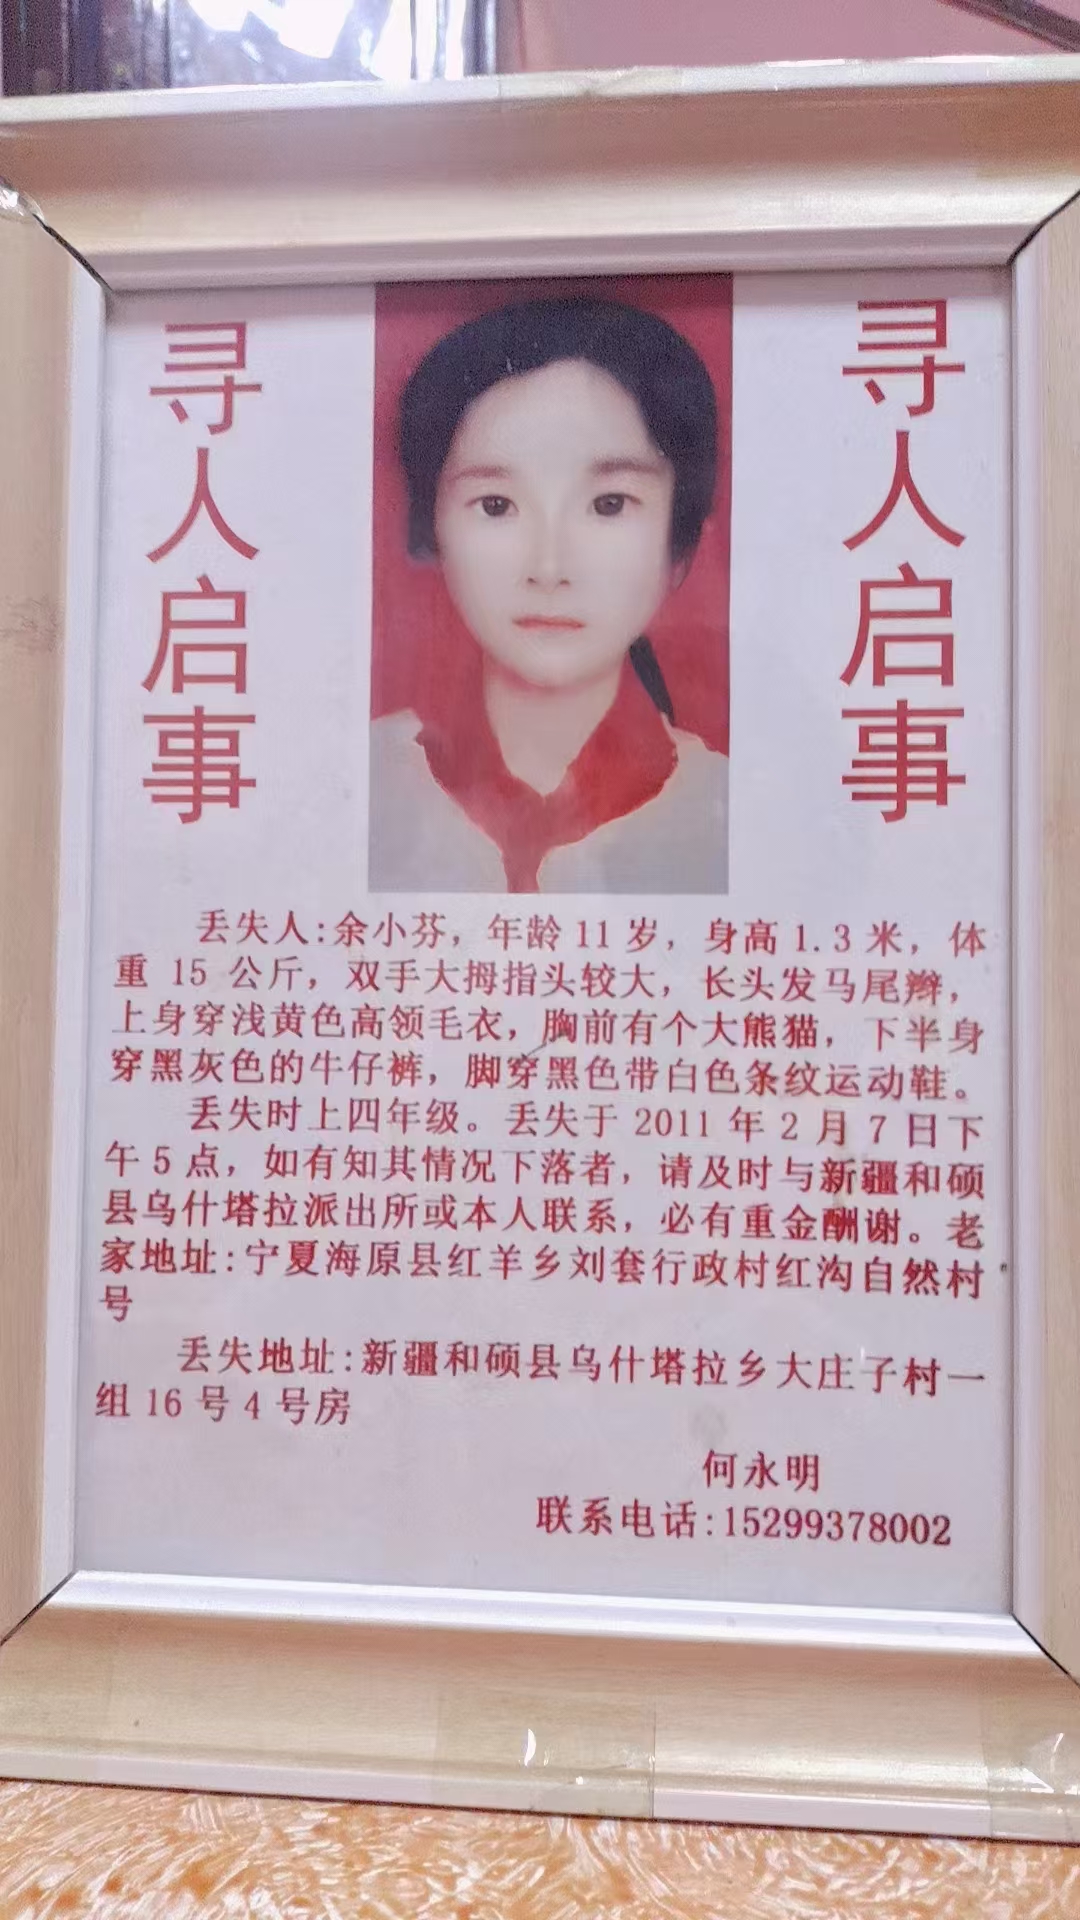 寻人启事
寻人启事
丢失人:余小芬，年龄11岁，身高1.3米，体
重 15 公斤，双手大拇指头较大，长头发马尾辫，
上身穿浅黄色高领毛衣，胸前有个大熊猫，下半身
穿黑灰色的牛仔裤，脚穿黑色带白色条纹运动鞋。
丢失时上四年级。丢失于 2011 年 2 月 7 日下
午 5 点，如有知其情况下落者，请及时与新疆和硕
县乌什塔拉派出所或本人联系，必有重金酬谢。老
家地址:宁夏海原县红羊乡刘套行政村红沟自然村
号
丢失地址:新疆和硕县乌什塔拉乡大庄子村一
组 16 号 4 号房
何永明
联系电话:15299378002